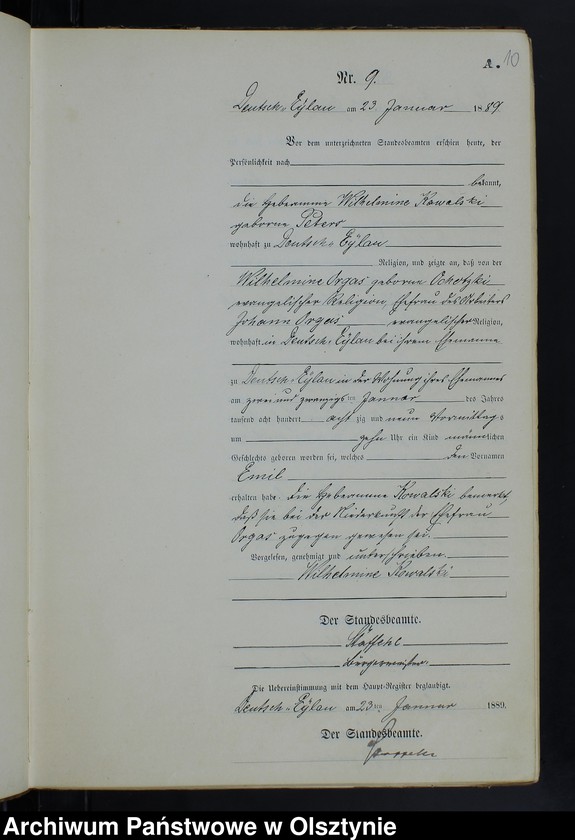 A. 10
Nr. 9.
Deutsch-Eylau am 23 Januar 1889
Vor dem unterzeichneten Standesbeamten erschien heute, der
Persönlichkeit nach
bekannt,
die Hebamme Wilhelmine Kowalski
geborne Peters
wohnhaft zu Deutsch-Eylau
Religion, und zeigte an, daß von der
Wilhelmine Orgas geborne
evangelischer Religion, Ehefrau des Arbeiters
Johann Orgas evangelischer Religion,
wohnhaft in Deutsch-Eylau bei ihrem Ehemanne
zu Deutsch-Eylau in der Wohnung ihres Ehemannes
am zwei und zwanzigsten Januar des Jahres
tausend acht hundert acht zig und neun Vormittags
um zehn Uhr ein Kind männlichen
Geschlechts geboren worden sei, welches den Vornamen
Emil
erhalten habe. Die Hebamme Kowalski bemerkt,
daß sie bei der Niederkunft der Ehefrau
Orgas zugegen gewesen sei.
Vorgelesen, genehmigt und unterschrieben
Wilhelmine Kowalski
Der Standesbeamte.
Staffehl
Bürgermeister.
Die Uebereinstimmung mit dem Haupt-Register beglaubigt.
Deutsch-Eylau am 23ten Januar 1889.
Der Standesbeamte.
Archiwum Państwowe w Olsztynie